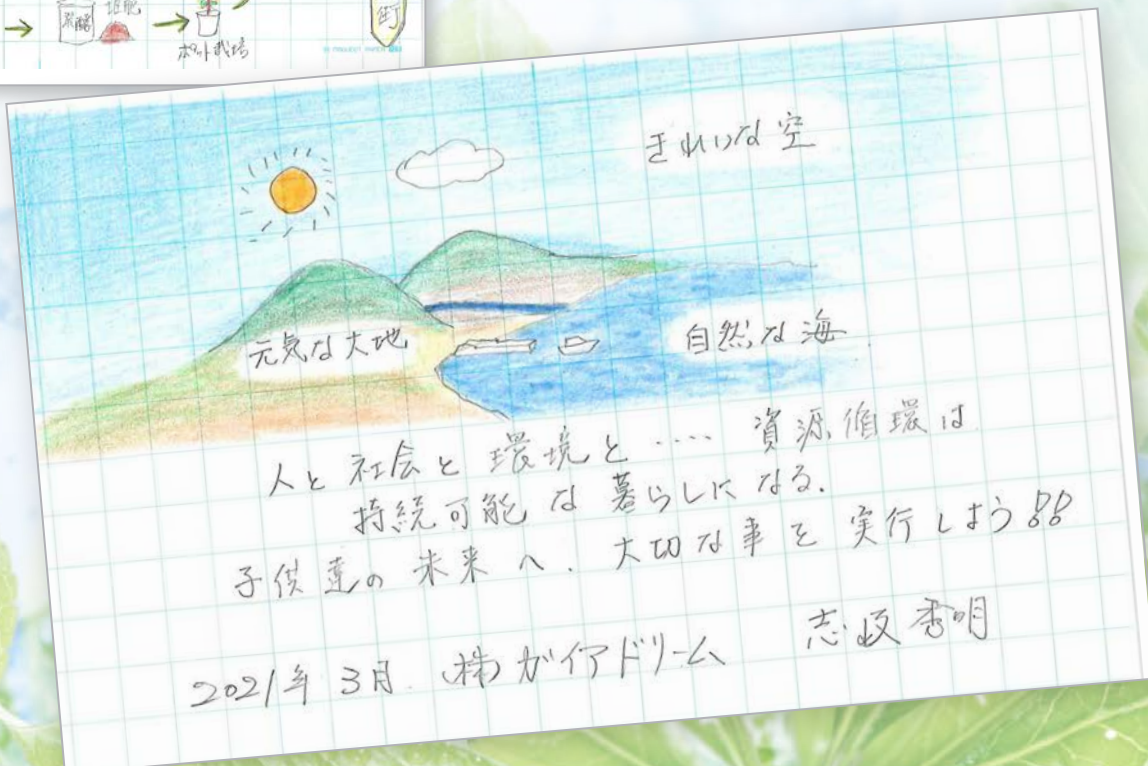 発酵
堆肥
ポット栽培
街
きれいな空
元気な大地
自然な海
人と社会と環境と ‥‥ 資源循環は
持続可能な暮らしになる.
子供達の未来へ. 大切な事を実行しよう!!
2021年3月. (株)ガイアドリーム
志岐秀明